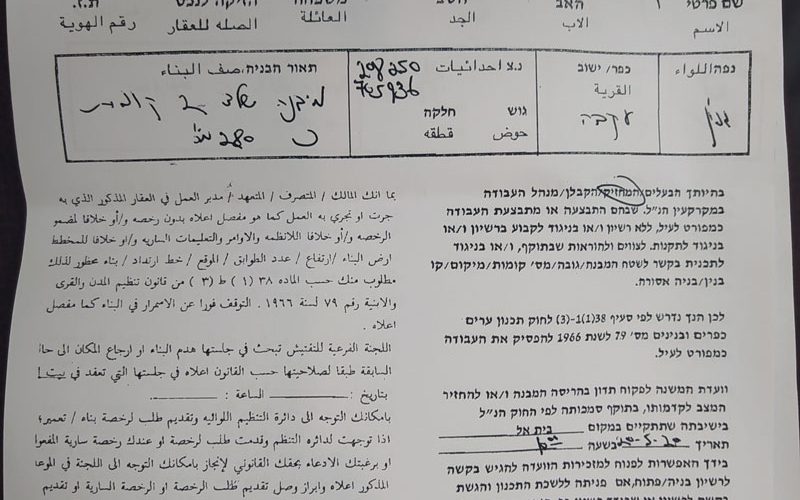 שם פרטי
האב
משפחה
ת.ז.
الاسم
الاب
الجد
العائلة
الصله للعقار
رقم الهوية
נפה/اللواء
כפר/ ישוב
القرية
נ.צ احداثيات
208250
גוש חלקה
حوض قطقه
תאור הבניה/صف البناء
ג'נין
עקבה
מבנה של 2 קומות
בתיותך הבעלים/המחזיק/הקבלן/מנהל העבודה
במקרקעין הנ"ל. שבהם התבצעה או מתבצעת העבודה
כמפורט לעיל, ללא רשיון ו/או בניגוד לקבוע ברשיון ו/או
בניגוד לתקנות. לצווים ולהוראות שבתוקף, ו/או בניגוד
לתכנית בקשר לשטח המבנה/גובה/מס' קומות/מיקום/קו
בנין/בניה אסורה.
לכן הנך נדרש לפי סעיף 38(1)-(3) לחוק תכנון ערים
כפרים ובנינים מס' 79 לשנת 1966 להפסיק את העבודה
כמפורט לעיל.
וועדת המשנה לפקוח תדון בהריסה המבנה ו/או להחזיר
המצב לקדמותו, בתוקף סמכותה לפי החוק הנ"ל
בישיבתה שתתקיים במקום בית אל
תאריך 20-5-20 בשעה
בידך האפשרות לפנות למזכירות הוועדה להגיש בקשה
לרשיון בניה/פתוח, אם פניתה ללשכת התכנון והגשת
بما انك المالك / المتصرف / المتعهد / مدير العمل في العقار المذكور الذي به
جرت او تجري به العمل كما هو مفصل اعلاه بدون رخصه و/أو خلافا لمضمو
الرخصه و/أو خلافا للانظمه والاوامر والتعليمات الساريه و/او خلافا للمخطط
ارض البناء /ارتفاع / عدد الطوابق / الموقع / خط ارتداد / بناء محظور لذلك
مطلوب منك حسب الماده ٣٨ ( ١ ) ط (٣ ) من قانون تنظيم المدن والقرى
والابنية رقم ٧٩ لسنة ١٩٦٦. التوقف فورا عن الاسمرار في البناء كما مفصل
اعلاه .
اللجنة الفرعية للتفتيش تبحث في جلستها هدم البناء او ارجاع المكان الى حا
السابقة طبقا لصلاحيتها حسب القانون اعلاه في جلستها التي تعقد في بيت
بتاريخ : الساعة :
بامكانك التوجه الى دائرة التنظيم اللوائيه وتقديم طلب لرخصة بناء / تعمير؛
اذا توجهت لدائره التنظم وقدمت طلب لرخصة او عندك رخصة سارية المفعوا
او برغبتك الادعاء بحقك القانوني لإنجاز بامكانك التوجه الى اللجنة في الموعا
المذكور اعلاه وابراز وصل تقديم طلب الرخصة او الرخصة السارية او تقديم